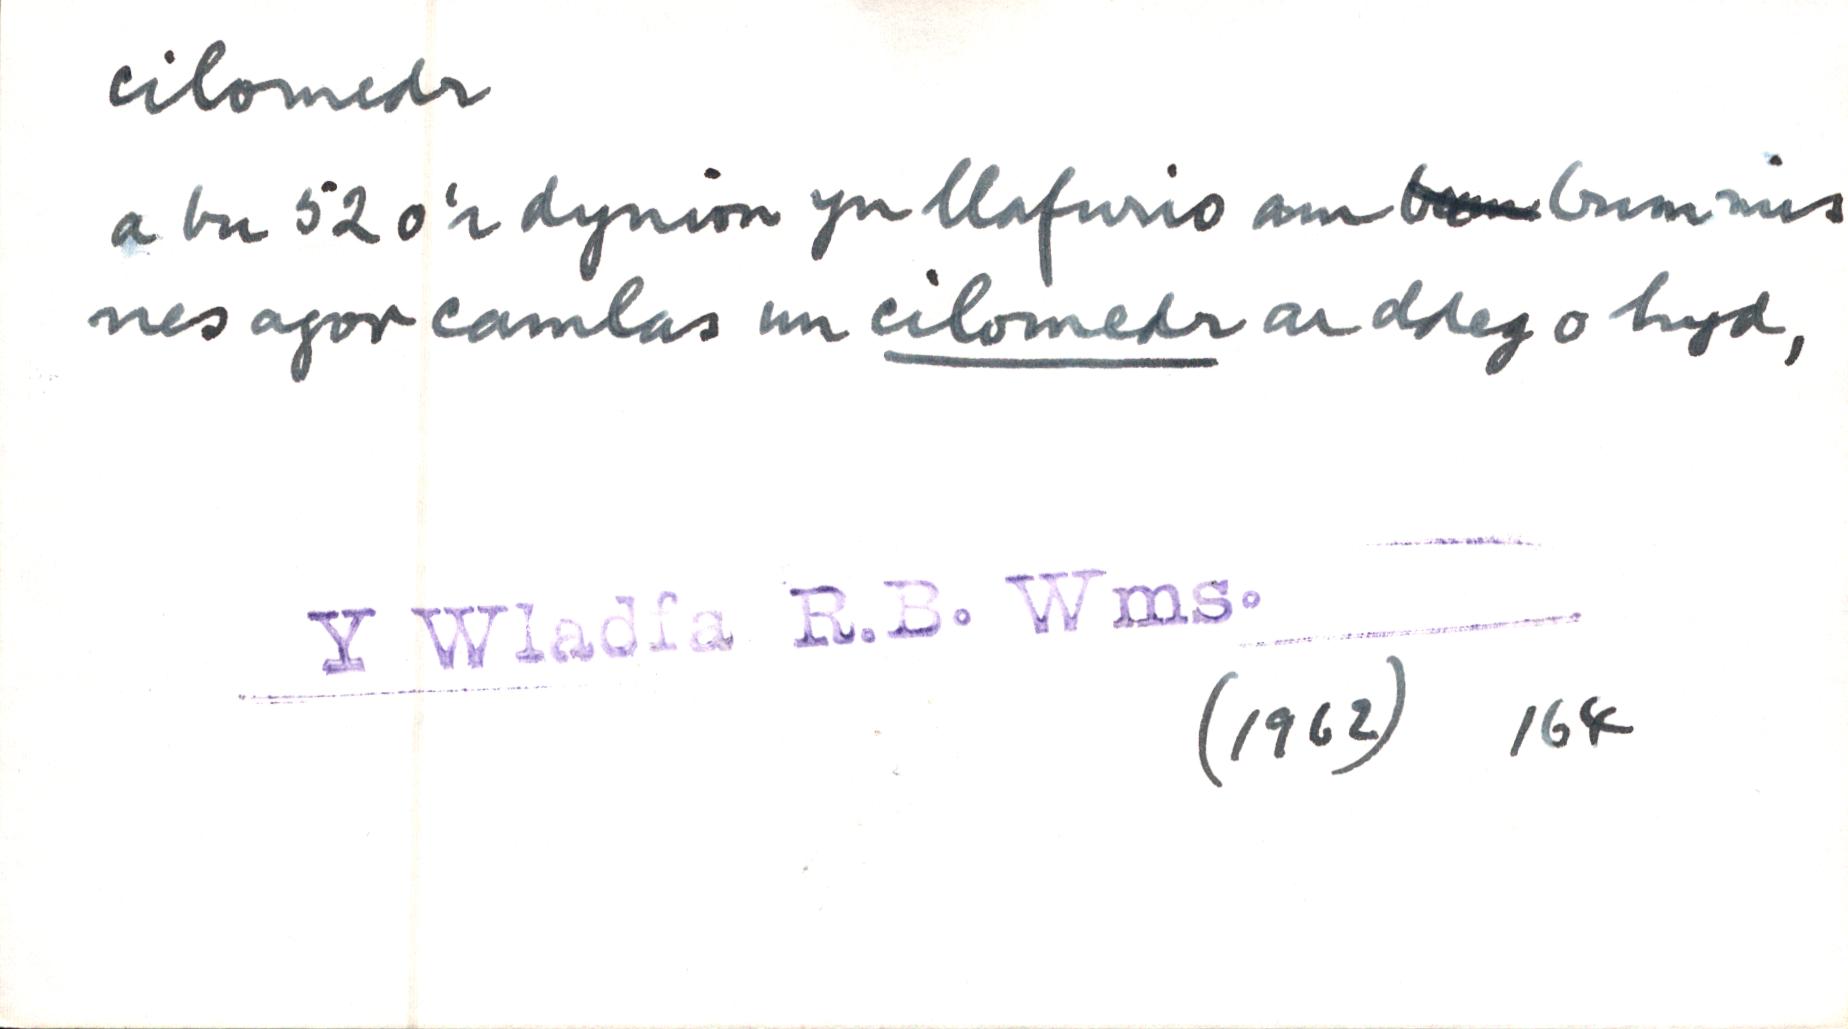 cilomedr
a bu 52 o'r dynion yn llafurio am bum mis
nes agor camlas un cilomedr ar ddeg o hyd,
Y Wladfa R.B. Wms.
(1962) 164